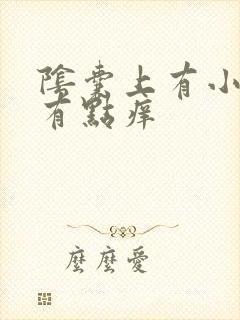 陰囊上有小
有點痒
麼麼愛